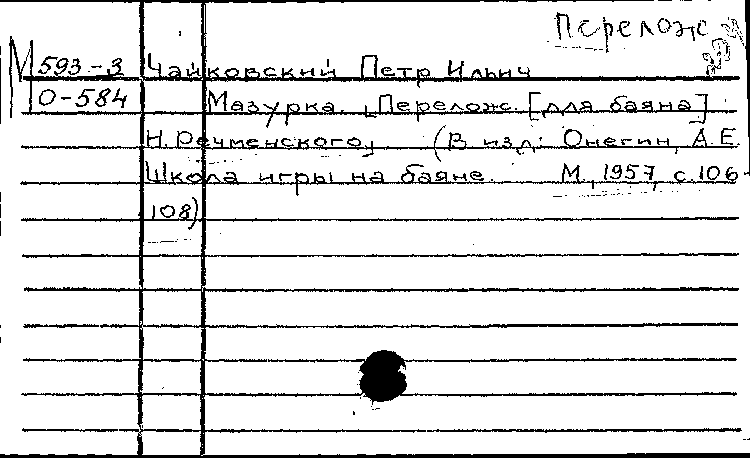 Перелож
М 593-3 Чайковский Петр Ильич
О-584 Мазурка. [Перелож. [для баяна]
Н. Речменского] (В изд: Онегин, А.Е.
Школа игры на баяне. М., 1957, с. 106
108)